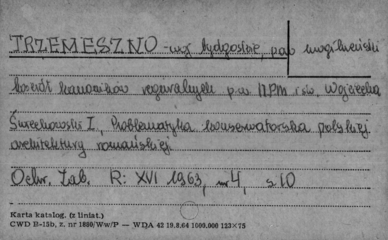 TRZEMESZNO - woj bydgoskie, pow mogileński
kościół kanoników regularnych p.w. NPM i św. Wojciecha
Świechowski Z., Problematyka konserwatorska polskiej
architektury romańskiej.
Ochr. Zab. R: XVI 1963, nr 4, s 10
Karta katalog. (z liniat.)
CWD B-15b, z. nr 1899/Ww/P — WDA 42 19.8.64 1000,000 123×75